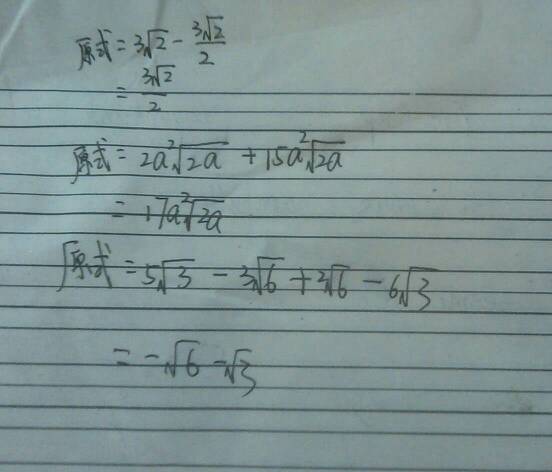 原式=3√2-3√2/2
=3√2/2
原式=2a²√2a+15a²√2a
=17a²√2a
原式=5√3-3√6+2√6-6√3
=-√6-√3